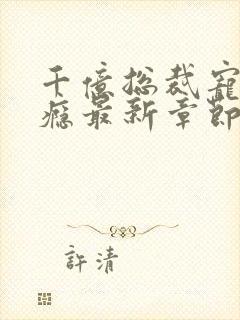 千億總裁寵
癮最新章節
許清